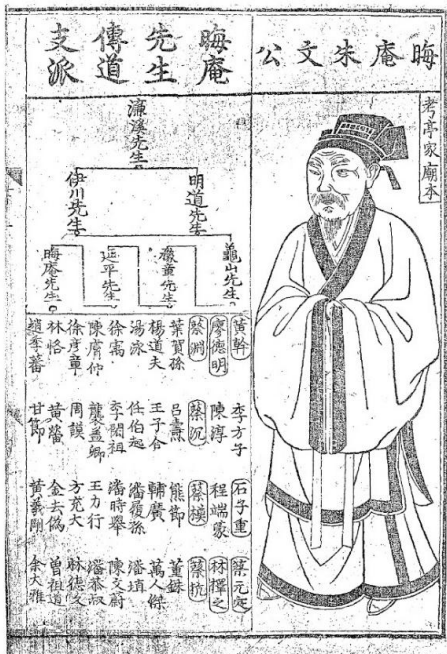 晦庵朱文公
考亭家廟本
晦庵
先生
傳道
支派
濂溪先生
明道先生
伊川先生
龜山先生
豫章先生
延平先生
晦庵先生
黃榦 李方子 石子重 蔡元定
廖德明 陳淳 程端蒙 林擇之
蔡淵 蔡沉 蔡模 蔡杭
葉賀孫 呂燾 熊節 董銖
楊道夫 王子合 輔廣 萬人傑
湯泳 任伯起 潘履孫
徐㝢 李閎祖 潘時舉 陳文蔚
陳膚仲 龔蓋卿 王力行 潘恭叔
徐彥章 周謨 方充大
林恪 黃㽦 金去偽 曾祖道
甘節 黃義剛 余大雅